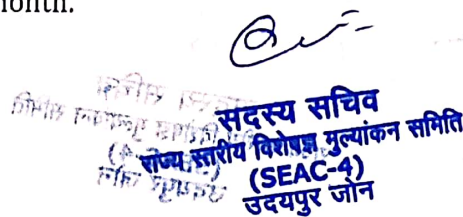 month.
सदस्य सचिव
राज्य स्तरीय विशेषज्ञ मुल्यांकन समिति
(SEAC-4)
उदयपुर जोन